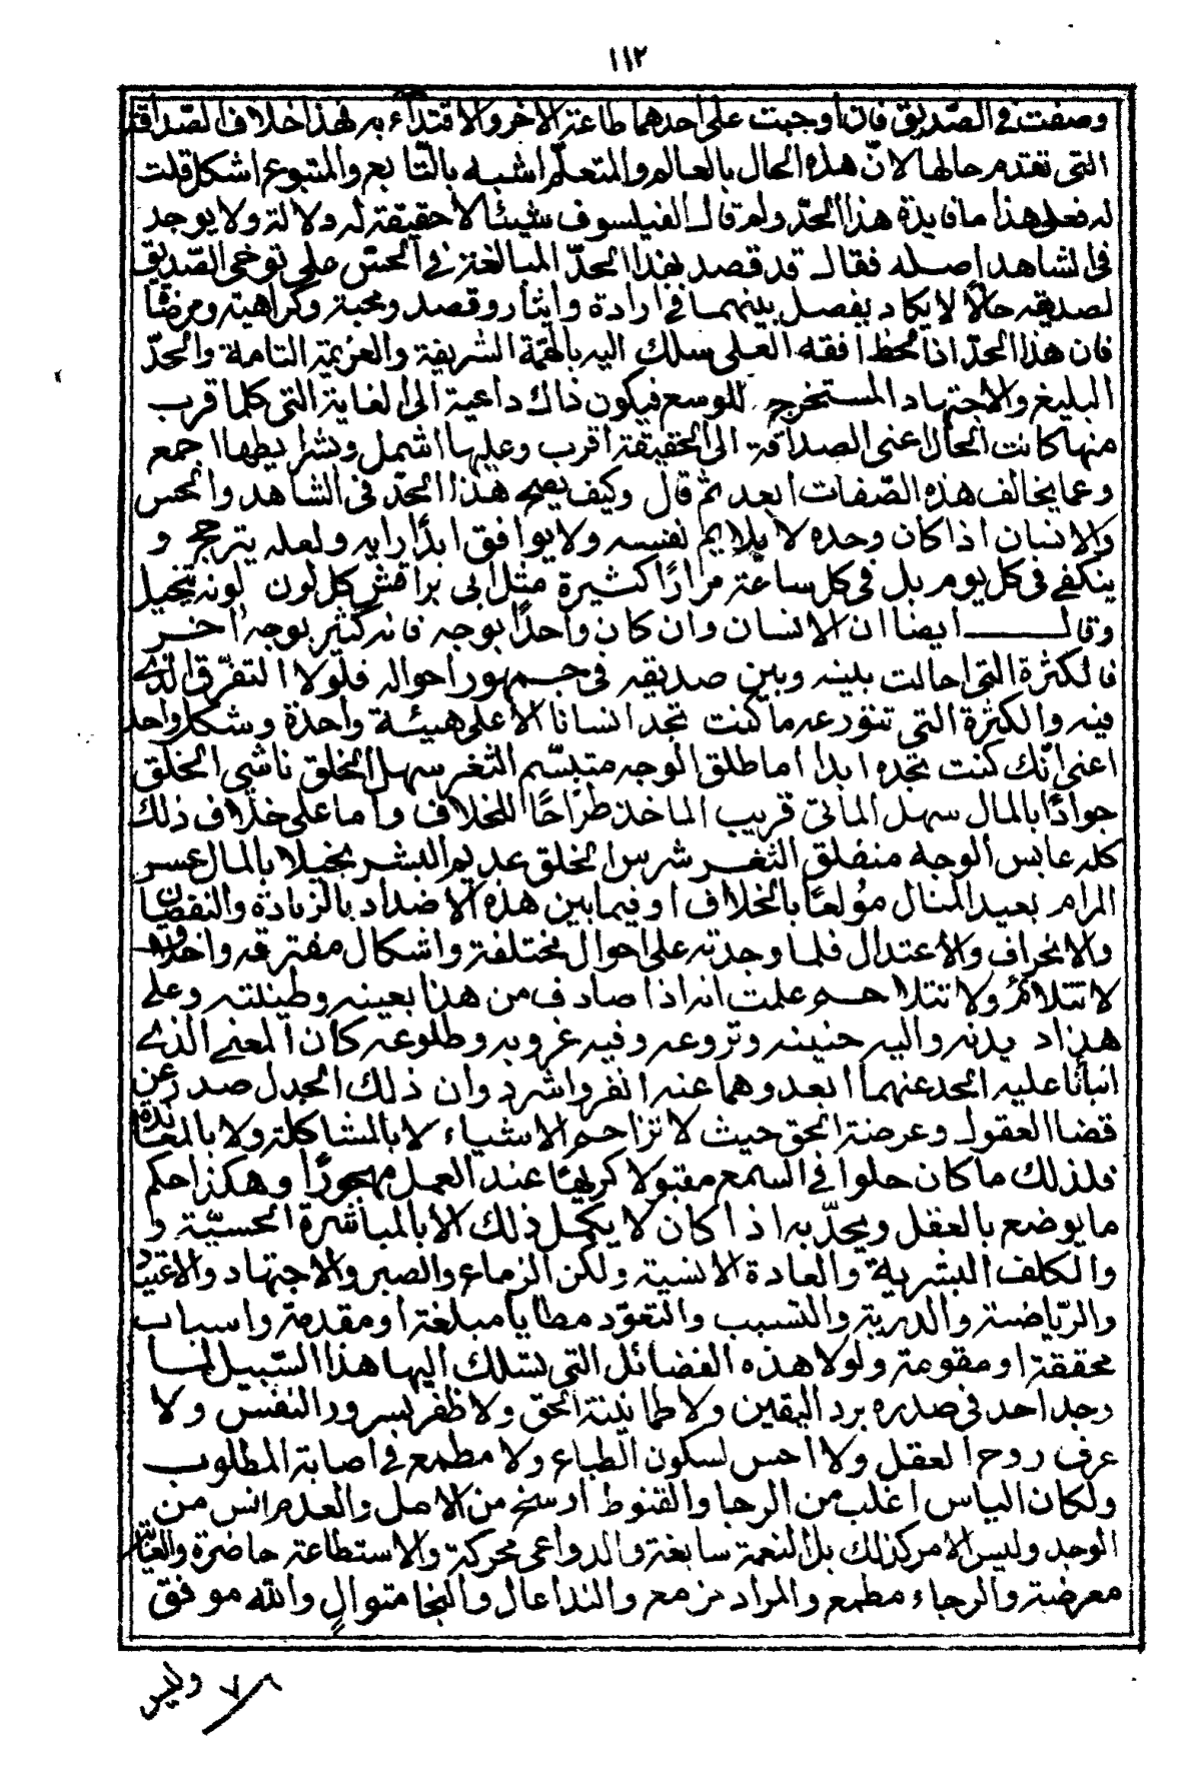 ١١٢
وصفت في الصّديق فان اوجبت على احدهما طاعة الاخر والاقتداء به فهذا خلاف الصّداقة
التي تقدم حالها لانّ هذه الحال بالعالم والمتعلّم اشبه بالتّابع والمتبوع اشكل قلت
له فعلى هذا ما فايدة هذا الحدّ ولم قال الفيلسوف شيئا لا حقيقة له ولا لة ولا يوجد
في الشاهد اصله فقال قد قصد بهذا الحدّ المبالغة في الحسّ على توخى الصّديق
لصديقه حالا لا يكاد يفصل بينهما في ارادة وايثار وقصد ومحبة وكراهية ومرضا
فان هذا الحدّ اذا لحظ افقه العلى سلك اليه بالهمّة الشريفة والعزيمة التامة والحدّ
البليغ والاجتهاد المستخرج للوسع فيكون ذاك داعية الى الغاية التي كلما قرب
منها كانت الحال اعنى الصداقة الى الحقيقة اقرب وعليها اشمل وبشرايطها اجمع
وعما يخالف هذه الصّفات ابعد ثم قال وكيف يصح هذا الحدّ في الشاهد والحس
والانسان اذا كان وحده لا يلايم نفسه ولا يوافق ابدًا رايه ولعله يترجح و
ينكفے في كل يوم بل في كل ساعة مرارًا كثيرة مثل ابى براقش كل لون لونه يتخيل
وقال ايضا ان الانسان وان كان واحدًا بوجه فانه كثير بوجه اخر
فالكثرة التي احالت بينه وبين صديقه في جمهور احواله فلولا التفرّق الذے
فيه والكثرة التي تتوزعه ما كنت تجد انسانا الا على هيئة واحدة وشكل واحد
اعنى انّك كنت تجده ابدا اما طلق الوجه متبسّم الثغر سهل الخلق ناشى الخلق
جوادًا بالمال سهل المأتى قريب الماخذ طرّاحًا للخلاف واما على خلاف ذلك
كله عابس الوجه منغلق الثغر شرس الخلق عديم البشر بخيلا بالمال عسر
المرام بعيد المنال مولعًا بالخلاف او فيما بين هذه الاضداد بالزيادة والنقصان
والانحراف والاعتدال فلما وجدته على احوال مختلفة واشكال مفترقه واخلاق
لا تتلائم ولا تتلاحم علمت انه اذا صادف من هذا بعينه وطينته وعلى
هذا ديدنه واليه حنينه ونزوعه وفيه غروبه وطلوعه كان المعنے الذے
انبأنا عليه الحد عنهما ابعد وهما عنه انفر واشرد وان ذلك الجدل صدر عن
قضا العقول وعرصة الحق حيث لا تزاحم الاشياء لا بالمشاكلة ولا بالمعاندة
فلذلك ما كان حلوا في السمع مقبولا كريهًا عند العمل مهجورًا وهكذا حكم
ما يوضع بالعقل ويحدّ به اذا كان لا يكمل ذلك الا بالمباشرة الحسيّة و
والكلف البشرية والعادة الانسية ولكن الزماع والصبر والاجتهاد والاعتياد
والرّياضة والدربة والتسبب والتعوّد مطايا مبلغة او مقدمة واسباب
محققة او مقومة ولولا هذه الفضائل التي تسلك اليها هذا السّبيل لما
وجد احد في صدره برد اليقين ولا طمانينة الحق ولا ظفر بسرور النفس ولا
عرف روح العقل ولا احس لسكون الطباع ولا مطمع في اصابة المطلوب
ولكان الياس اغلب من الرجا والقنوط ارسخ من الامل والعدم انس من
الوجد وليس الامر كذلك بل النعمة سابغة والدواعى محركة والاستطاعة حاضرة والغاية
معرضة والرجاء مطمع والمراد مزمع والندا عال والنجا متوالٍ والله موفق
وليس